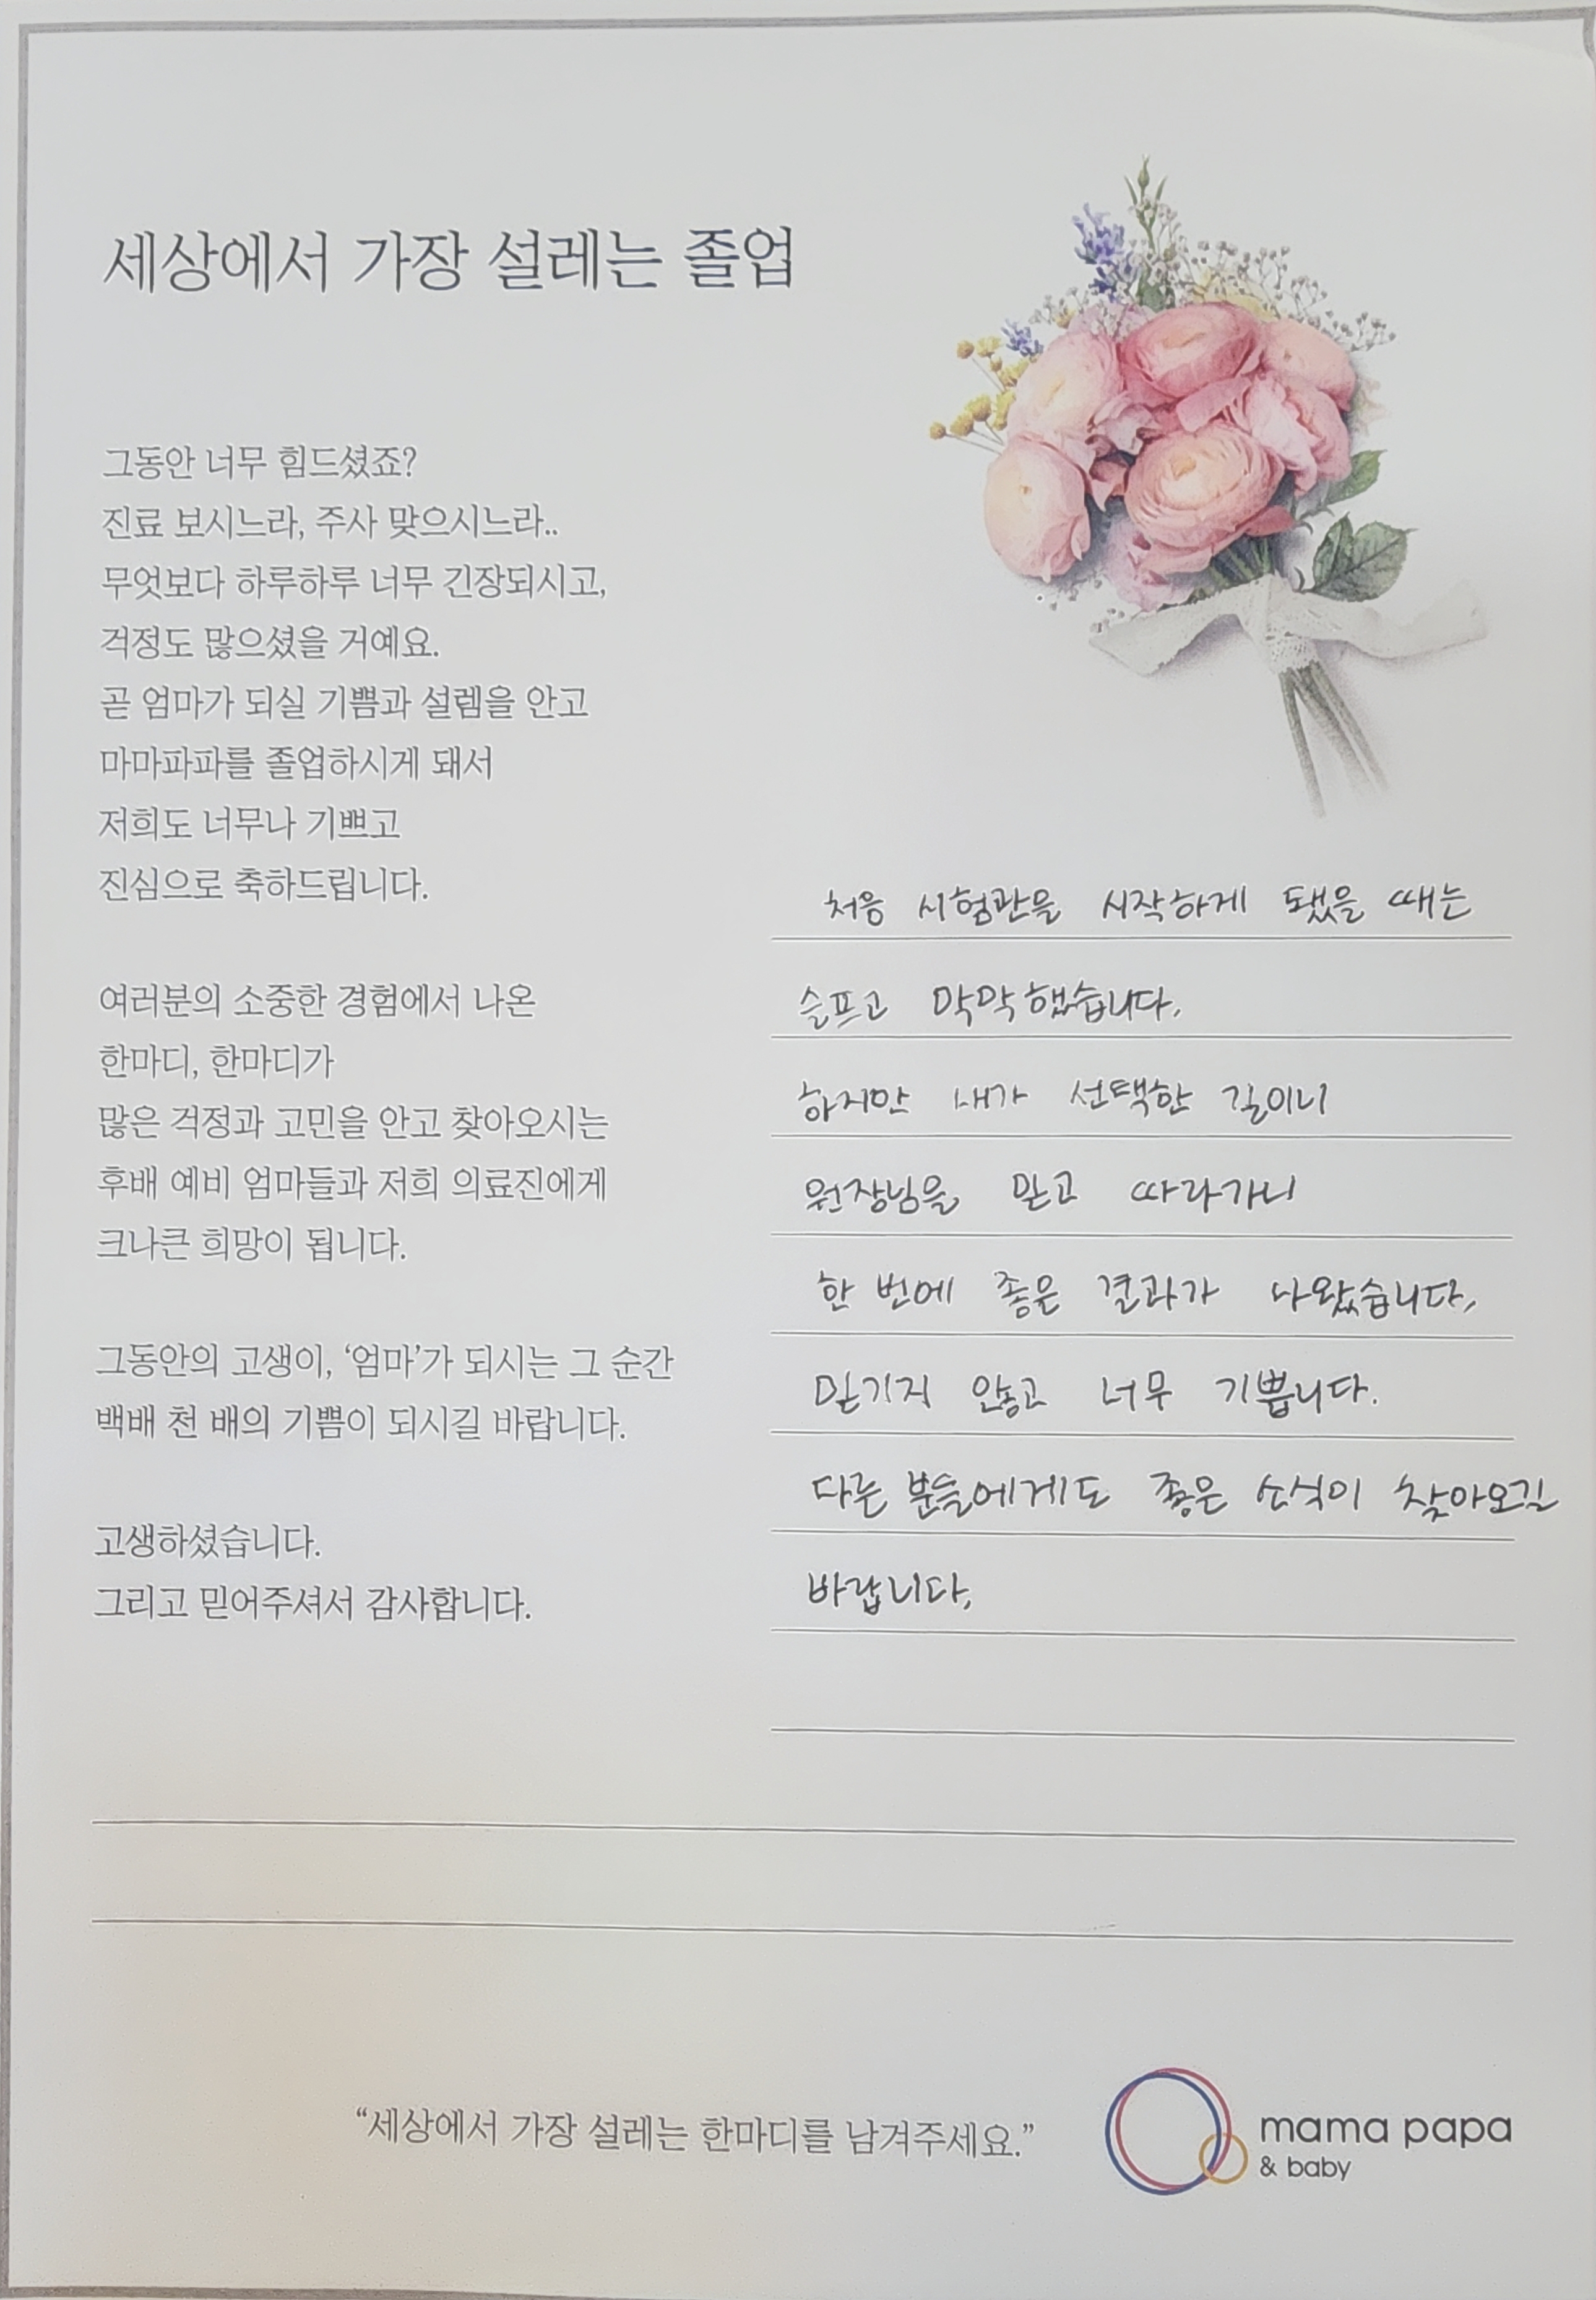 세상에서 가장 설레는 졸업
그동안 너무 힘드셨죠?
진료 보시느라, 주사 맞으시느라..
무엇보다 하루하루 너무 긴장되시고,
걱정도 많으셨을 거예요.
곧 엄마가 되실 기쁨과 설렘을 안고
마마파파를 졸업하시게 돼서
저희도 너무나 기쁘고
진심으로 축하드립니다.
여러분의 소중한 경험에서 나온
한마디, 한마디가
많은 걱정과 고민을 안고 찾아오시는
후배 예비 엄마들과 저희 의료진에게
크나큰 희망이 됩니다.
그동안의 고생이, ‘엄마’가 되시는 그 순간
백배 천 배의 기쁨이 되시길 바랍니다.
고생하셨습니다.
그리고 믿어주셔서 감사합니다.
처음 시험관을 시작하게 됐을 때는
슬프고 막막했습니다.
하지만 내가 선택한 길이니
원장님을 믿고 따라가니
한 번에 좋은 결과가 나왔습니다.
믿기지 않고 너무 기쁩니다.
다른 분들에게도 좋은 소식이 찾아오길
바랍니다.
“세상에서 가장 설레는 한마디를 남겨주세요.”
mama papa
& baby